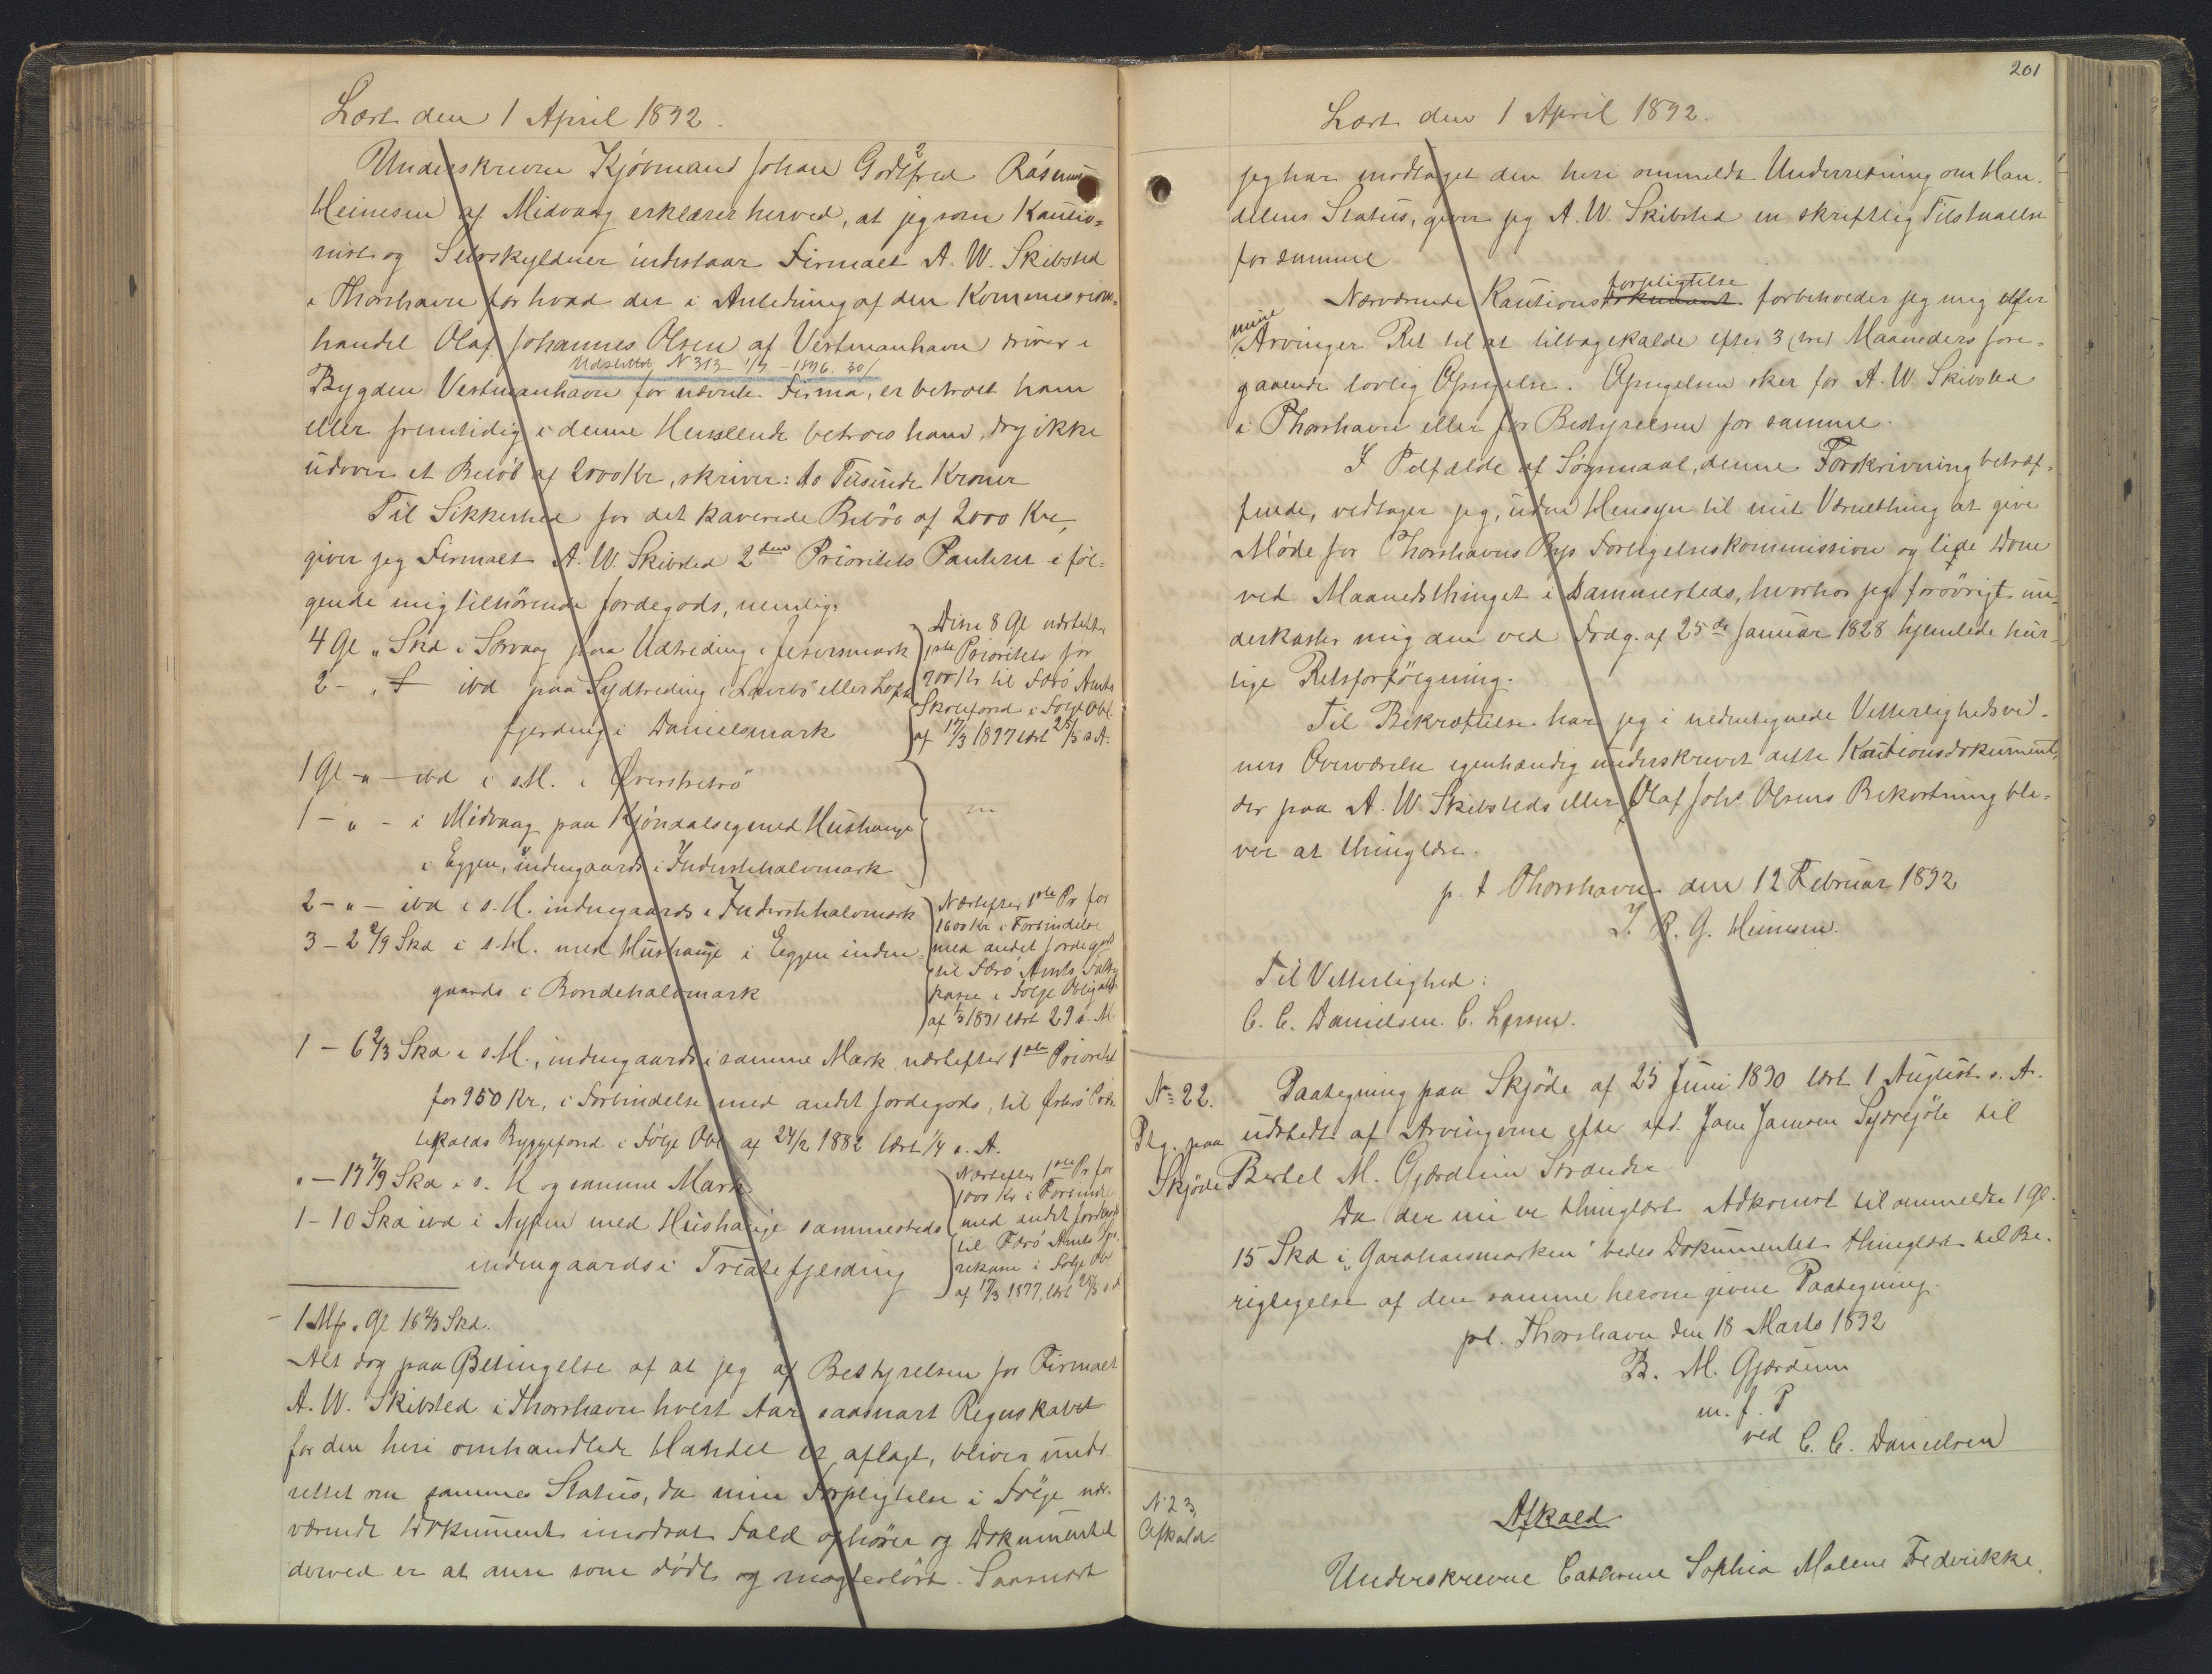 Læst den 1 April 1892.
Underskrevne Kjøbmand Johan Godtfred Rasmus
Heinesen af Midvaag erklærer herved, at jeg som Kautio-
nist og Selvskyldner indestaar Firmaet A. W. Skibsted
i Thorshavn for hvad der i Anledning af den Kommissions-
handel Olaf Johannes Olsen af Vestmanhavn driver i
Udslettet N 313 1/7 - 1896. 301
Bygden Vestmanhavn for nævnte Firma, er betroet ham
eller fremtidig i denne Henseende betroes ham, dog ikke
udover et Beløb af 2000 Kr, skriver: to Tusinde Kroner
Til Sikkerhed for det kaverede Beløb af 2000 Kr,
giver jeg Firmaet A. W. Skibsted 2den Prioritets Panteret i føl-
gende mig tilhørende Jordegods, nemlig:
4 Gl " Skd i Sørvaag paa Udtreding i Jesersmark
2 - " - ibd paa Sydtreding i Lavebø eller Loft
fjerding i Danielsmark
Disse 8 Gl næstefter
1ste Prioritets for
700 Kr til Færø Amts
Skolefond i Følge Obl.
af 17/3 1877 læst 25/5 s. A.
1 Gl - " - ibd i s. M. i Øverstrebø
1 - " - i Midvaag paa Kjøndalseg med Hushauge
i Eggen, indengaards i Inderstehalvmark
2 - " - ibd i s. M. indengaards i Inderstehalvmark
3 - 2 2/9 Skd i s. M. med Hushauge i Eggen inden-
gaards i Bondehalvmark
Næstefter 1ste Pr for
1600 Kr i Forbindelse
med andet Jordegods
til Færø Amts Fattig
kasse i Følge Obligat
af 1/3 1891 læst 29 s. M.
1 - 6 2/3 Skd i s. M., indengaards i samme Mark næstefter 1ste Prioritet
for 950 Kr, i Forbindelse med andet Jordegods, til Østerø Præ-
stekalds Byggefond i Følge Obl af 24/2 1882 læst 1/4 s. A.
" - 17 7/9 Skd i s. M og samme Mark
1 - 10 Skd ibd i Nygen med Hushauge sammesteds
indengaards i Triatefjerding
Næstefter 1ste Pr for
1000 Kr i Forbindel
med andet Jordegods
til Færø Amts Spa-
rekasse i Følge Obl
af 17/3 1877, læst 25/5 s. A
1 Mk " Gl 16 2/3 Skd.
Alt dog paa Betingelse af at jeg af Bestyrelsen for Firmaet
A. W. Skibsted i Thorshavn hvert Aar saasnart Regnskabet
for den heri omhandlede Handel er aflagt, bliver under
rettet om sammes Status, da min Forpligtelse i Følge nær-
værende Dokument i modsat Fald ophører og Dokumentet
derved er at anse som dødt og magtesløst. Saasnart
201
Læst den 1 April 1892.
jeg har modtaget den heri ommeldte Underretning om Han-
delens Status, giver jeg A. W. Skibsted en skriftlig Tilstaaelse
for samme
forpligtelse
Nærværende Kautionsdokument forbeholder jeg mig eller
mine
Arvinger Ret til at tilbagekalde efter 3 (tre) Maaneders fore-
gaaende lovlig Opsigelse. Opsigelsen sker for A. W. Skibsted
i Thorshavn eller for Bestyrelsen for samme.
I Tilfælde af Søgsmaal, denne Forskrivning betræf-
fende, vedtager jeg, uden Hensyn til mit Værnething at give
Møde for Thorshavns Bys Forligelseskommission og lide Dom
ved Maanedsthinget i Sammesteds, hvorhos jeg forøvrigt un-
derkaster mig den ved Frdg. af 25de Januar 1828 hjemlede hur-
tige Retsforfølgning.
Til Bekræftelse har jeg i nedentegnede Vitterlighedsvid-
ners Overværelse egenhændig underskrevet dette Kautionsdokument,
der paa A. W. Skibsteds eller Olaf Johs Olsens Bekostning bli-
ver at thinglæse.
p. t Thorshavn den 12 Februar 1892
J. R. G. Heinesen.
Til Vitterlighed:
C. C. Danielsen. C. Larsen.
No 22.
Ptg. paa
Skjøde
Paategning paa Skjøde af 25 Juni 1890 læst 1 August s. A.
udstedt af Arvingerne efter afd. Jane Jansen Sydregöte til
Bertel M. Gjærdum Strænder
Da der nu er thinglæst Adkomst til ommeldte 1 Gl.
15 Skd i "Garahaismarken" bedes Dokumentet thinglæst til Be-
rigtigelse af den samme herom givne Paategning.
pt. Thorshavn den 18 Marts 1892
B. M. Gjærdum
m. f. P
ved C. C. Danielsen
N 23
Afkald.
Afkald
Underskrevne Cathrine Sophia Malene Frederikke